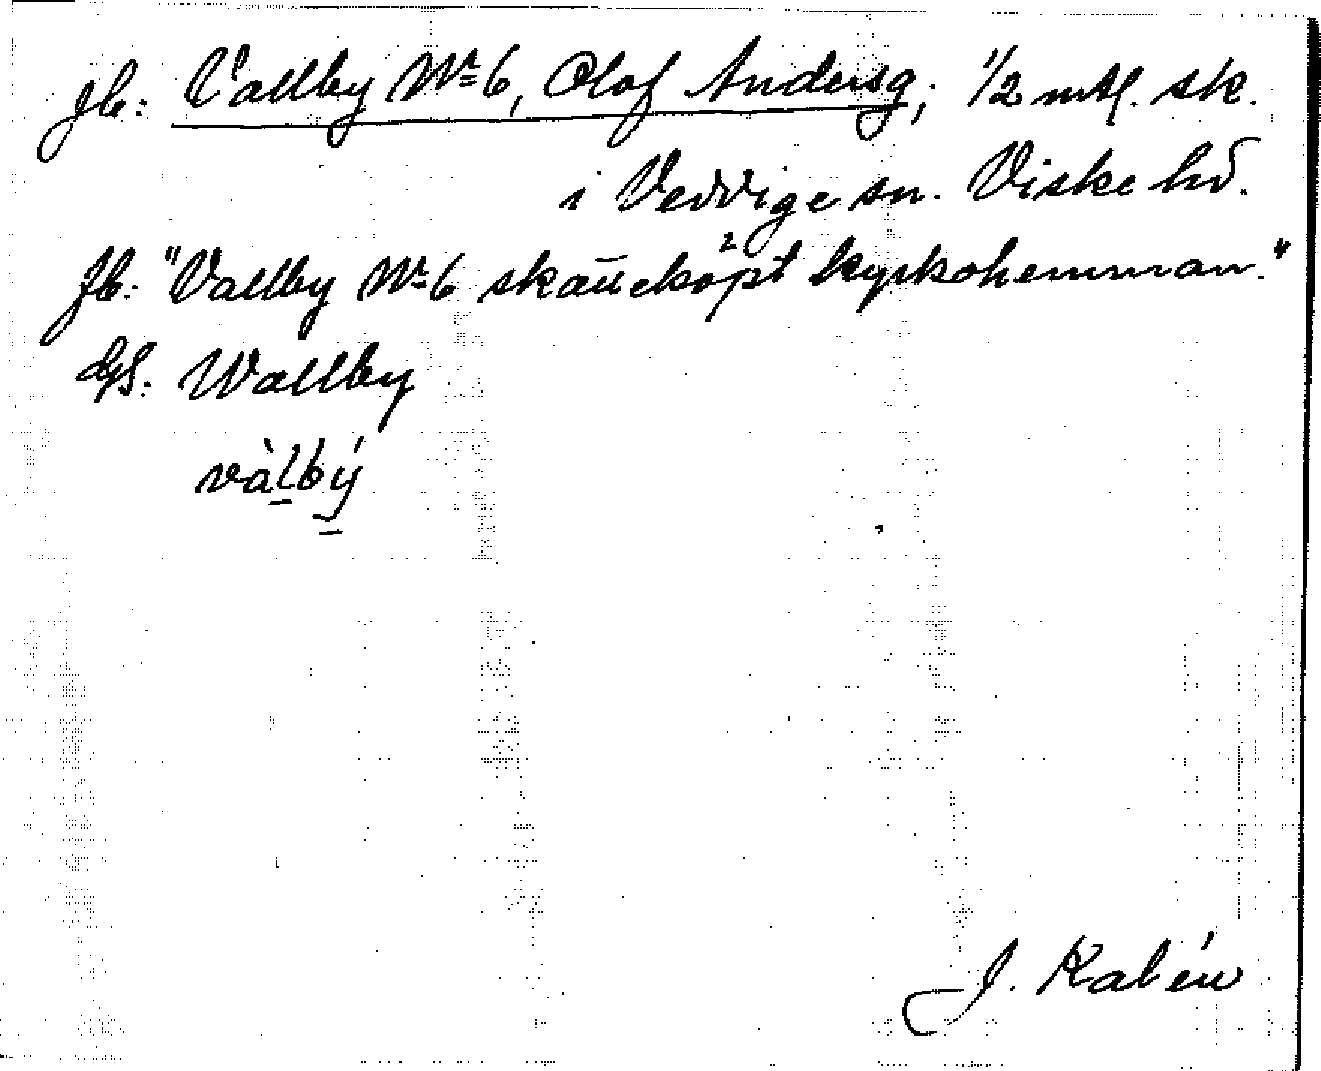 Jb: Vallby Nº 6, Olof Andersg, 1/2 mtl. sk.
i Veddige sn. Viske hd.
Jb: "Vallby Nº 6 skatteköpt kyrkohemman."
GS: Wallby
vàlbý
J. Kalén